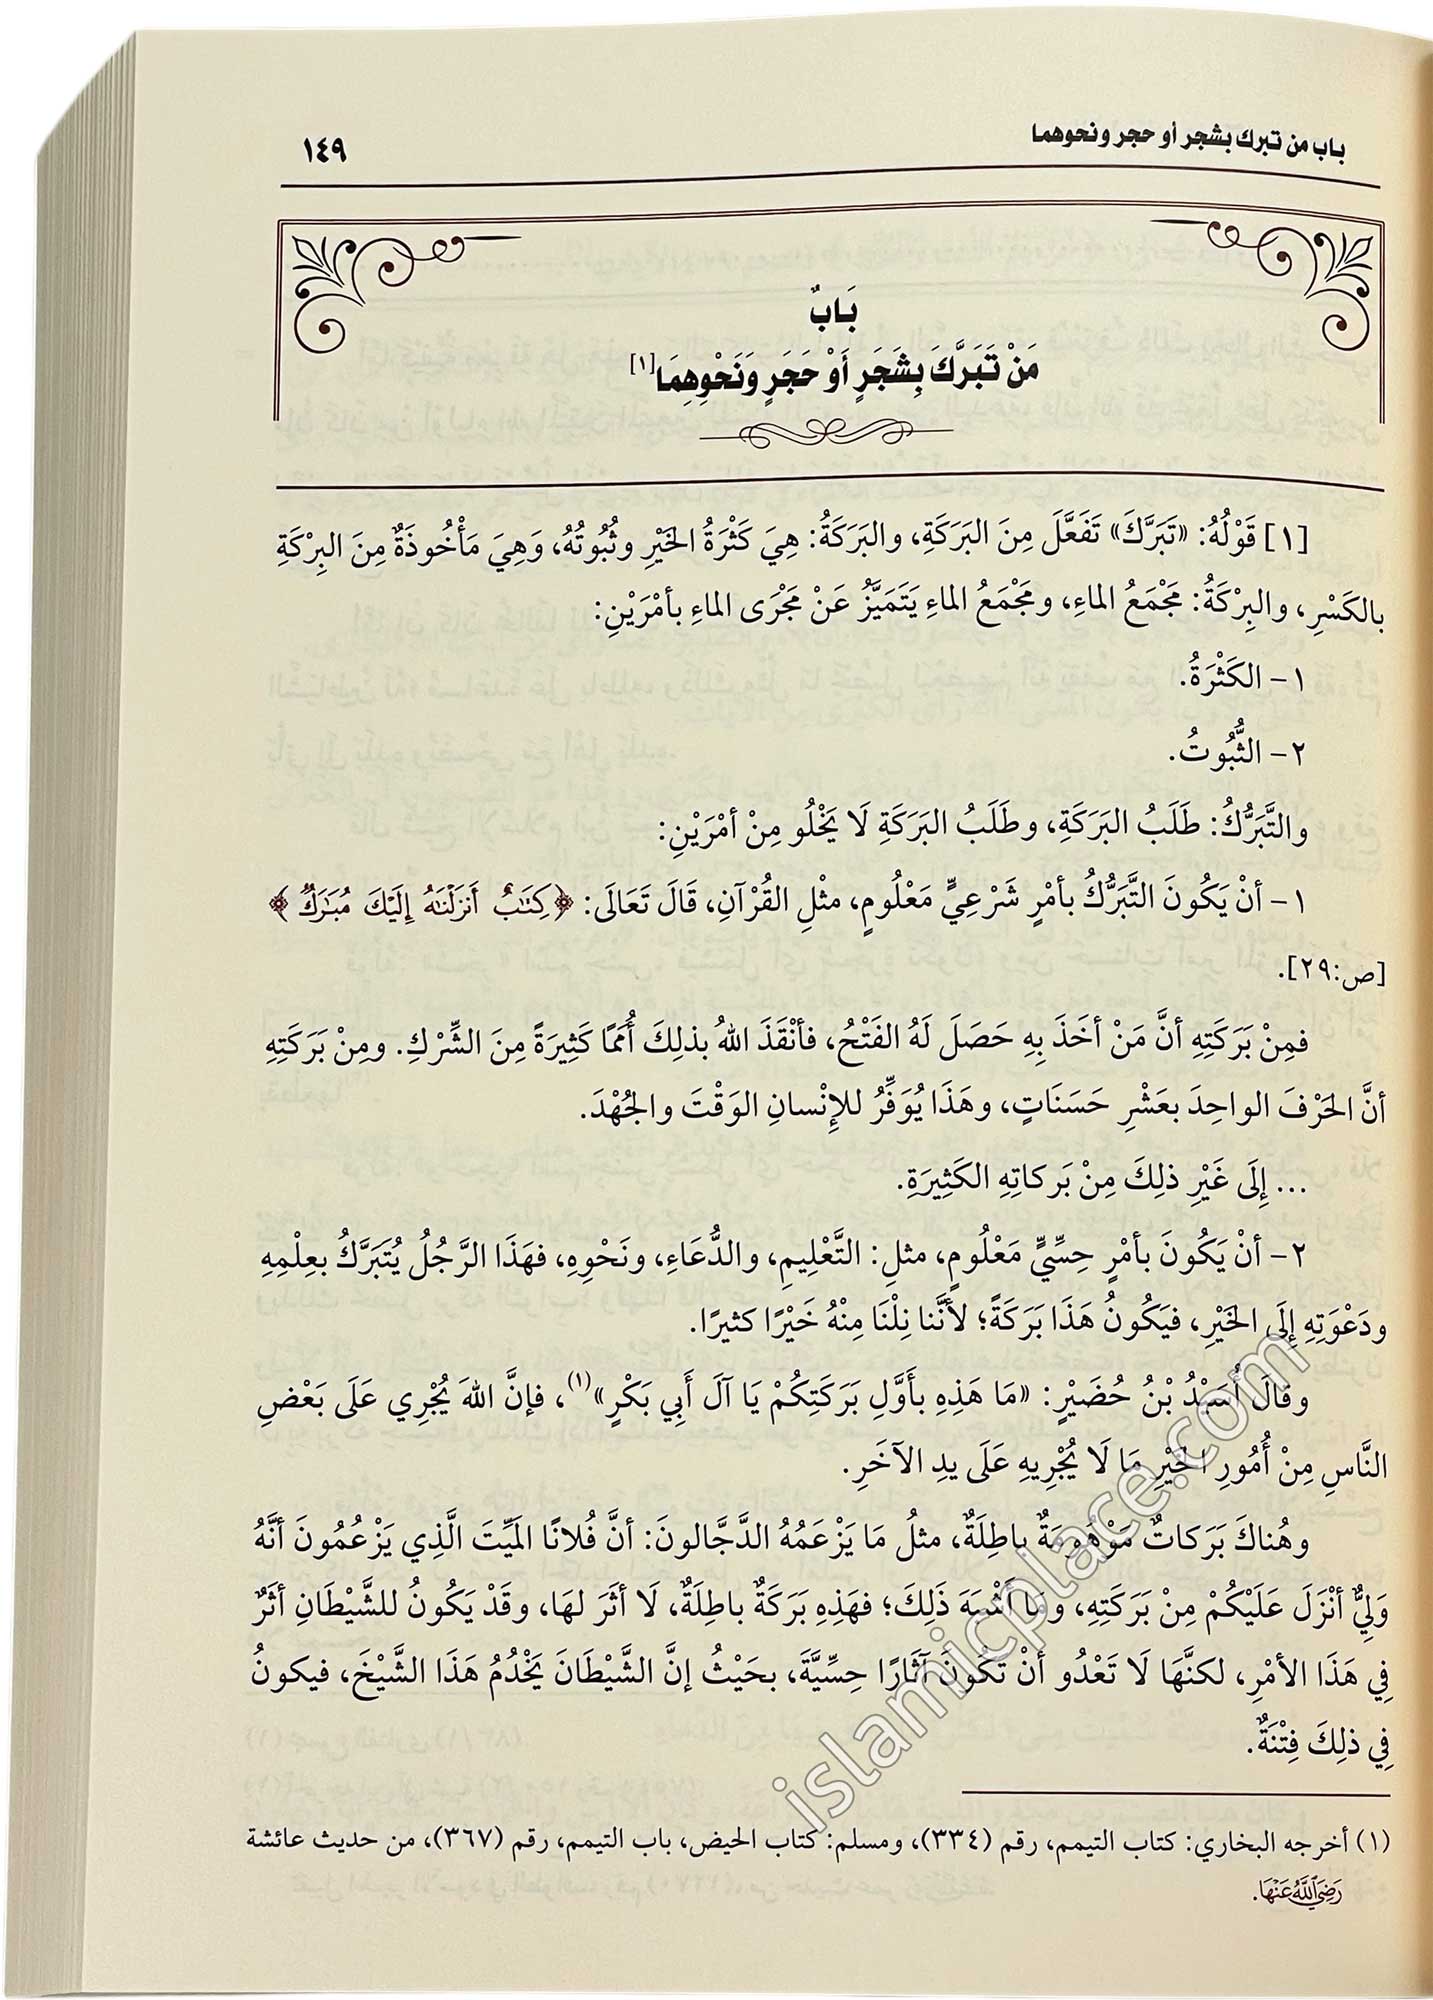 باب من تبرك بشجر أو حجر ونحوهما
١٤٩
بَابٌ
مَنْ تَبَرَّكَ بِشَجَرٍ أَوْ حَجَرٍ وَنَحْوِهِمَا[١]
[١] قَوْلُهُ: «تَبَرَّكَ» تَفَعَّلَ مِنَ البَرَكَةِ، والبَرَكَةُ: هِيَ كَثْرَةُ الخَيْرِ وثُبُوتُهُ، وَهِيَ مَأْخُوذَةٌ مِنَ البِرْكَةِ
بالكَسْرِ، والبِرْكَةُ: مَجْمَعُ الماءِ، ومَجْمَعُ الماءِ يَتَمَيَّزُ عَنْ مَجْرَى الماءِ بأمْرَيْنِ:
١- الكَثْرَةُ.
٢- الثُّبُوتُ.
والتَّبَرُّكُ: طَلَبُ البَرَكَةِ، وطَلَبُ البَرَكَةِ لَا يَخْلُو مِنْ أمْرَيْنِ:
١- أنْ يَكُونَ التَّبَرُّكُ بأمْرٍ شَرْعِيٍّ مَعْلُومٍ، مثْلِ القُرْآنِ، قَالَ تَعَالَى: ﴿كِتَٰبٌ أَنزَلْنَٰهُ إِلَيْكَ مُبَٰرَكٌ﴾
[ص:٢٩].
فمِنْ بَرَكَتِهِ أنَّ مَنْ أخَذَ بِهِ حَصَلَ لَهُ الفَتْحُ، فأنْقَذَ اللهُ بذلِكَ أُمَمًا كَثِيرَةً مِنَ الشِّرْكِ. ومِنْ بَرَكَتِهِ
أنَّ الحَرْفَ الواحِدَ بعَشْرِ حَسَنَاتٍ، وهَذَا يُوَفِّرُ للإِنْسانِ الوَقْتَ والجُهْدَ.
... إِلَى غَيْرِ ذلِكَ مِنْ بَركاتِهِ الكَثِيرَةِ.
٢- أنْ يَكُونَ بأمْرٍ حِسِّيٍّ مَعْلُومٍ، مثلِ: التَّعْلِيمِ، والدُّعَاءِ، ونَحْوِهِ، فهَذَا الرَّجُلُ يُتَبَرَّكُ بعِلْمِهِ
ودَعْوَتِهِ إِلَى الخَيْرِ، فيَكُونُ هَذَا بَرَكَةً؛ لأَنَّنا نِلْنَا مِنْهُ خَيْرًا كثيرًا.
وقَالَ أُسَيْدُ بْنُ حُضَيْرٍ: «مَا هَذِهِ بأَوَّلِ بَرَكَتِكُمْ يَا آلَ أَبِي بَكْرٍ»(١)، فإنَّ اللهَ يُجْرِي عَلَى بَعْضِ
النَّاسِ مِنْ أُمُورِ الخَيْرِ مَا لَا يُجْرِيهِ عَلَى يدِ الآخَرِ.
وهُناكَ بَرَكاتٌ مَوْهُومَةٌ باطِلَةٌ، مثلُ مَا يَزْعَمُهُ الدَّجَّالونَ: أنَّ فُلانًا المَيِّتَ الَّذِي يَزْعُمُونَ أنَّهُ
وَلِيٌّ أنْزَلَ عَلَيْكُمْ مِنْ بَرَكَتِهِ، ومَا أَشْبَهَ ذَلِكَ؛ فهَذِهِ بَرَكَةٌ باطِلَةٌ، لَا أثَرَ لهَا، وقَدْ يَكُونُ للشَّيْطَانِ أثَرٌ
فِي هَذَا الأمْرِ، لكنَّهَا لَا تَعْدُو أنْ تَكُونَ آثَارًا حِسِّيَّةَ، بحَيْثُ إنَّ الشَّيْطَانَ يَخْدُمُ هَذَا الشَّيْخَ، فيكونُ
فِي ذلِكَ فِتْنَةٌ.
(١) أخرجه البخاري: كتاب التيمم، رقم (٣٣٤)، ومسلم: كتاب الحيض، باب التيمم، رقم (٣٦٧)، من حديث عائشة
رَضِيَ اللَّهُ عَنْهَا.
islamicplace.com